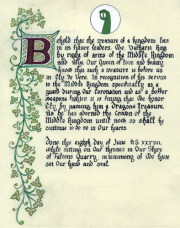 Behold that the treasure of a kingdom lies
in its future leaders. We, Valharic King
by right of arms of the Middle Kingdom
and Our Queen of love and beauty
know that such a treasure is before us
In recognition of his service
to the Middle Kingdom specifically as a
guard during our coronation and as a
weapons it is fitting that We honor
by naming him a Dragons Treasure.
As he has adorned the Crown of the
Middle Kingdom until now so shall he
continue to do so in our hearts.
Done this eighth day of June AS XXXVIII,
while sitting on Our thrones in Our Shire
of Falcons Quarry, in testimony of We have
set our hand and seal.